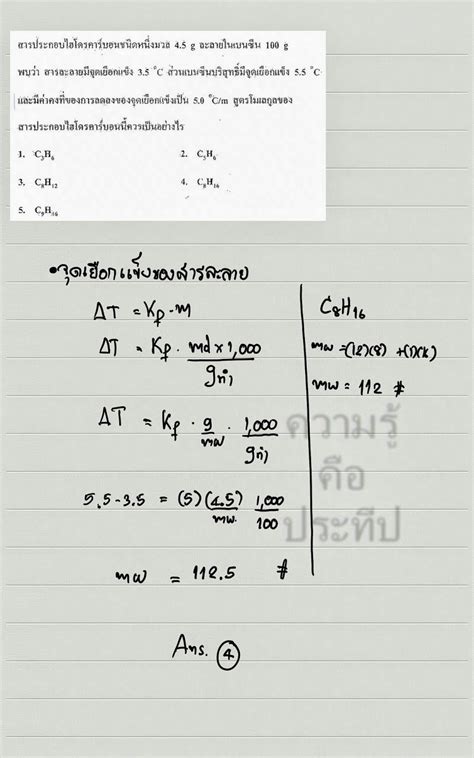 สารประกอบไฮโดรคาร์บอนชนิดหนึ่งมวล 4.5 g ละลายในเบนซีน 100 g
พบว่า สารละลายมีจุดเยือกแข็ง 3.5 °C ส่วนเบนซีนบริสุทธิ์มีจุดเยือกแข็ง 5.5 °C
และมีค่าคงที่ของการลดลงของจุดเยือกแข็งเป็น 5.0 °C/m สูตรโมเลกุลของ
สารประกอบไฮโดรคาร์บอนนี้ควรเป็นอย่างไร
1. C₅H₆ 2. C₅H₆
3. C₈H₁₂ 4. C₈H₁₆
5. C₉H₁₆
•จุดเยือกแข็งของสารละลาย
ΔT = Kf·m
ΔT = Kf · md x 1,000
gทำ
ΔT = Kf · g · 1,000
mw gทำ
5.5-3.5 = (5) (4.5) 1,000
mw. 100
mw = 112.5 #
C₈H₁₆
mw = (12)(8) + (1)(16)
mw = 112 #
ความรู้
คือ
ประทีป
Ans. ④